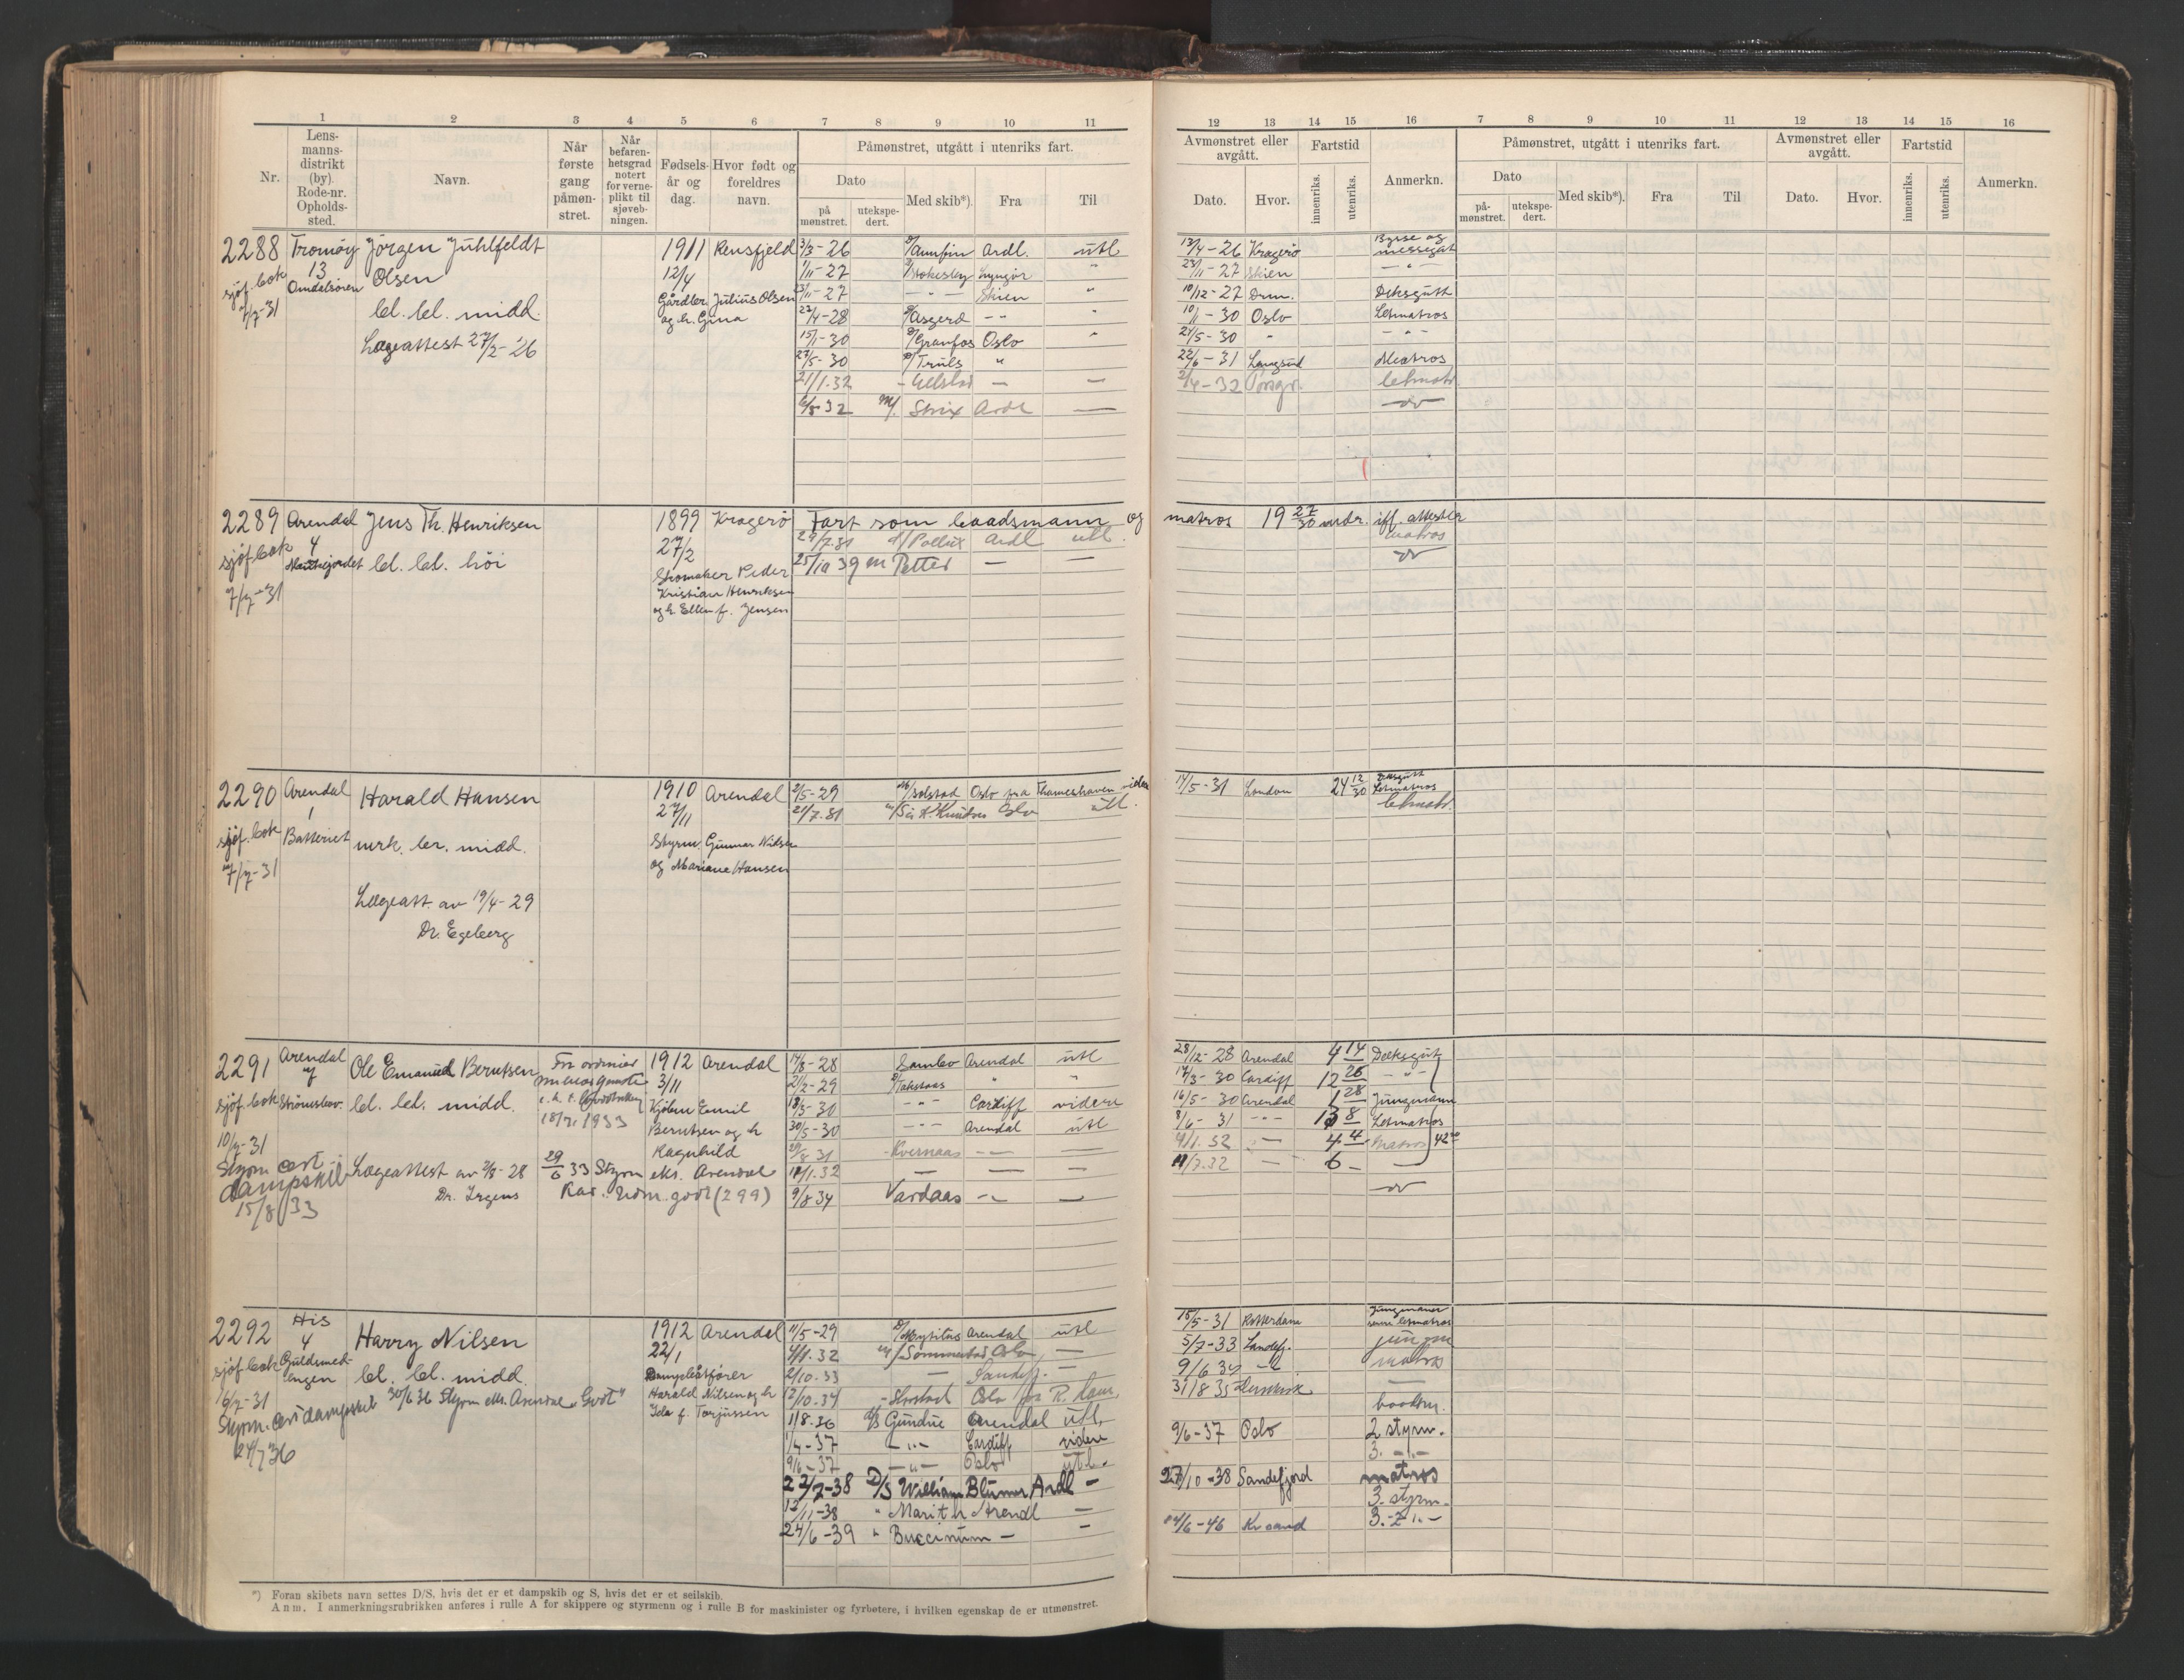 1 2 3 4 5 6 7 8 9 10 11
Nr.
Lens-
manns-
distrikt
(by).
Rode-nr.
Opholds-
sted.
Navn.
Når
første
gang
påmøn-
stret.
Når
befaren-
hetsgrad
notert
for verne-
plikt til
sjøveb-
ningen.
Fødsels-
år og
dag.
Hvor født og
foreldres
navn.
Påmønstret, utgått i utenriks fart.
Dato
på
mønstret.
utekspe-
dert.
Med skib*).
Fra
Til
12 13 14 15 16 7 8 9 10 11 12 13 14 15 16
Avmønstret eller
avgått.
Dato.
Hvor.
Fartstid
innenriks.
utenriks.
Anmerkn.
Påmønstret, utgått i utenriks fart.
Dato
på-
mønstret.
utekspe-
dert.
Med skib*).
Fra
Til
Avmønstret eller
avgått.
Dato.
Hvor.
Fartstid
innenriks.
utenriks.
Anmerkn.
2288 Tromøy Jörgen Juhlfeldt
13 Olsen
sjøf.bok
7/7-31
bl. bl. midd.
Lægeattest 27/2-26
1911
12/4
Gårdbr. Julius Olsen
og h. Gina
3/3-26 Arnfin Ardl. utl
1/11-27 Stokesby Lyngör "
23/11-27 - " - Skien "
23/4-28 Asgerd - " "
15/1-30 Granfos Oslo "
27/5-30 Truls "
21/1.32 - — —
6/8-32 M/ Strix Ardl —
13/4-26 Kragerö Bysse og
messegut
23/11-27 Skien - " -
10/12-27 Drm. Deksgutt
10/1-30 Oslo Letmatros
27/5-30 " - " -
22/6-31 Langsund Matros
2/4-32 Porsgr. letmatr
do
2289 Arendal Jens Th. Henriksen
4
sjøf.bok bl. bl. höi
7/7-31
1899 Kragerö
27/2
Skomaker Peder
Kristian Henriksen
og h. Ellen f. Jensen
Fart som baadsmann og matros 19 27/30 mdr. iflf. attester
29/7.31 d/ Pollux Ardl utl. matros
25/10 39 m Petter — — do
2290 Arendal Harald Hansen
1
sjøf.bok Batteriet mrk. br. midd.
7/7-31
Lægeatt. av 19/4-29
Dr. Egeberg
1910 Arendal
27/11
Styrm. Gunnar Nilsen
og Mariane Hansen
2/5-29 M/ Solstad Oslo fra Thameshaven videre
21/7.31 Oslo utl.
14/5-31 London 24 12/30 Deksgutt
Letmatros
letmatr.
2291 Arendal Ole Emanuel Berntsen
sjøf.bok bl. bl. midd.
10/7-31
Styrm cert.
dampskib
15/8 33
Lægeattest av 2/8-28
Dr. Irgens
1912 Arendal
3/11
Kjøbm Emil
Berntsen og h
Ragnhild
29/6 33 Styrm eks. Arendal
Kar. Udm. godt (299)
14/8-28 Sambo Arendal utl
21/2-29 Takstaas " "
18/3-30 - " - Cardiff videre
30/5-30 - " - Arendal utl
- Kvernaas — —
18/1.32 — — —
9/8 34 Vardaas — —
28/12-28 Arendal 4 14 Deksgut
14/3-30 Cardiff 12 26 - " -
16/5-30 Arendal 1 28 Jungmann
8/6-31 - " - 8 Letmatros
4/1.32 — 4 4 matros
6 - —
do
2292 His Harry Nilsen
4
sjøf.bok Guldsmed-
engen bl. bl. midd.
16/7-31
30/6 36 Styrm eks. Arendal "Godt"
Styrm. cert dampskib
24/7 36
1912 Arendal
22/1
Dampbåtfører
Harald Nilsen og h
Ida f. Torjussen
11/5-29 D/ Mytilus Arendal utl
4/1.32 m/ Sommerstad Oslo —
2/10.33 — Sandefj. —
12/10.34 Oslo fra R. dam,
1/8.36 d/s Gundine Arendal utl.
1/4-37 - " - Cardiff videre
9/6-37 - " - Oslo utl.
22/7-38 D/S William Blumer Ardl -
12/11-38 " Marit h Arendl -
24/6-39 " Buccinum - -
15/5-31 Rotterdam Jungmann
senere letmatros
5/7-33 Sandefj. jungm
9/6 34 - " - matros
31/8 35 —
baadsm.
9/6-37 Oslo 2 styrm.
3. - " -
27/10-38 Sandefjord matros
3. styrm.
24/6-46 Kr sand 3. - " -
*) Foran skibets navn settes D/S, hvis det er et dampskib og S, hvis det er et seilskib.
Anm. I anmerkningsrubrikken anføres i rulle A for skippere og styrmenn og i rulle B for maskinister og fyrbøtere, i hvilken egenskap de er utmønstret.